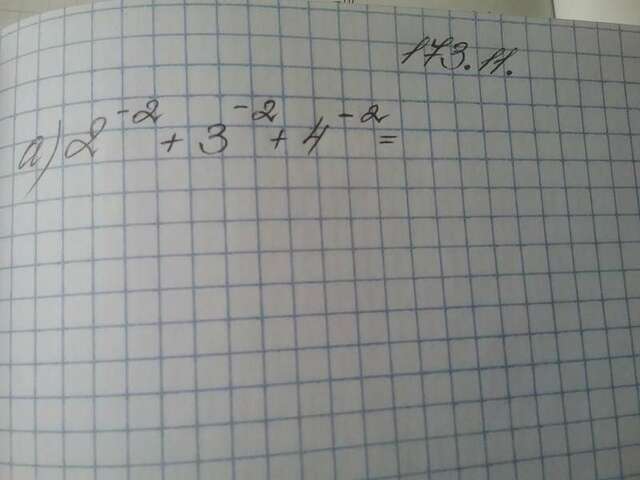 173.11.
а) 2⁻² + 3⁻² + 4⁻² =